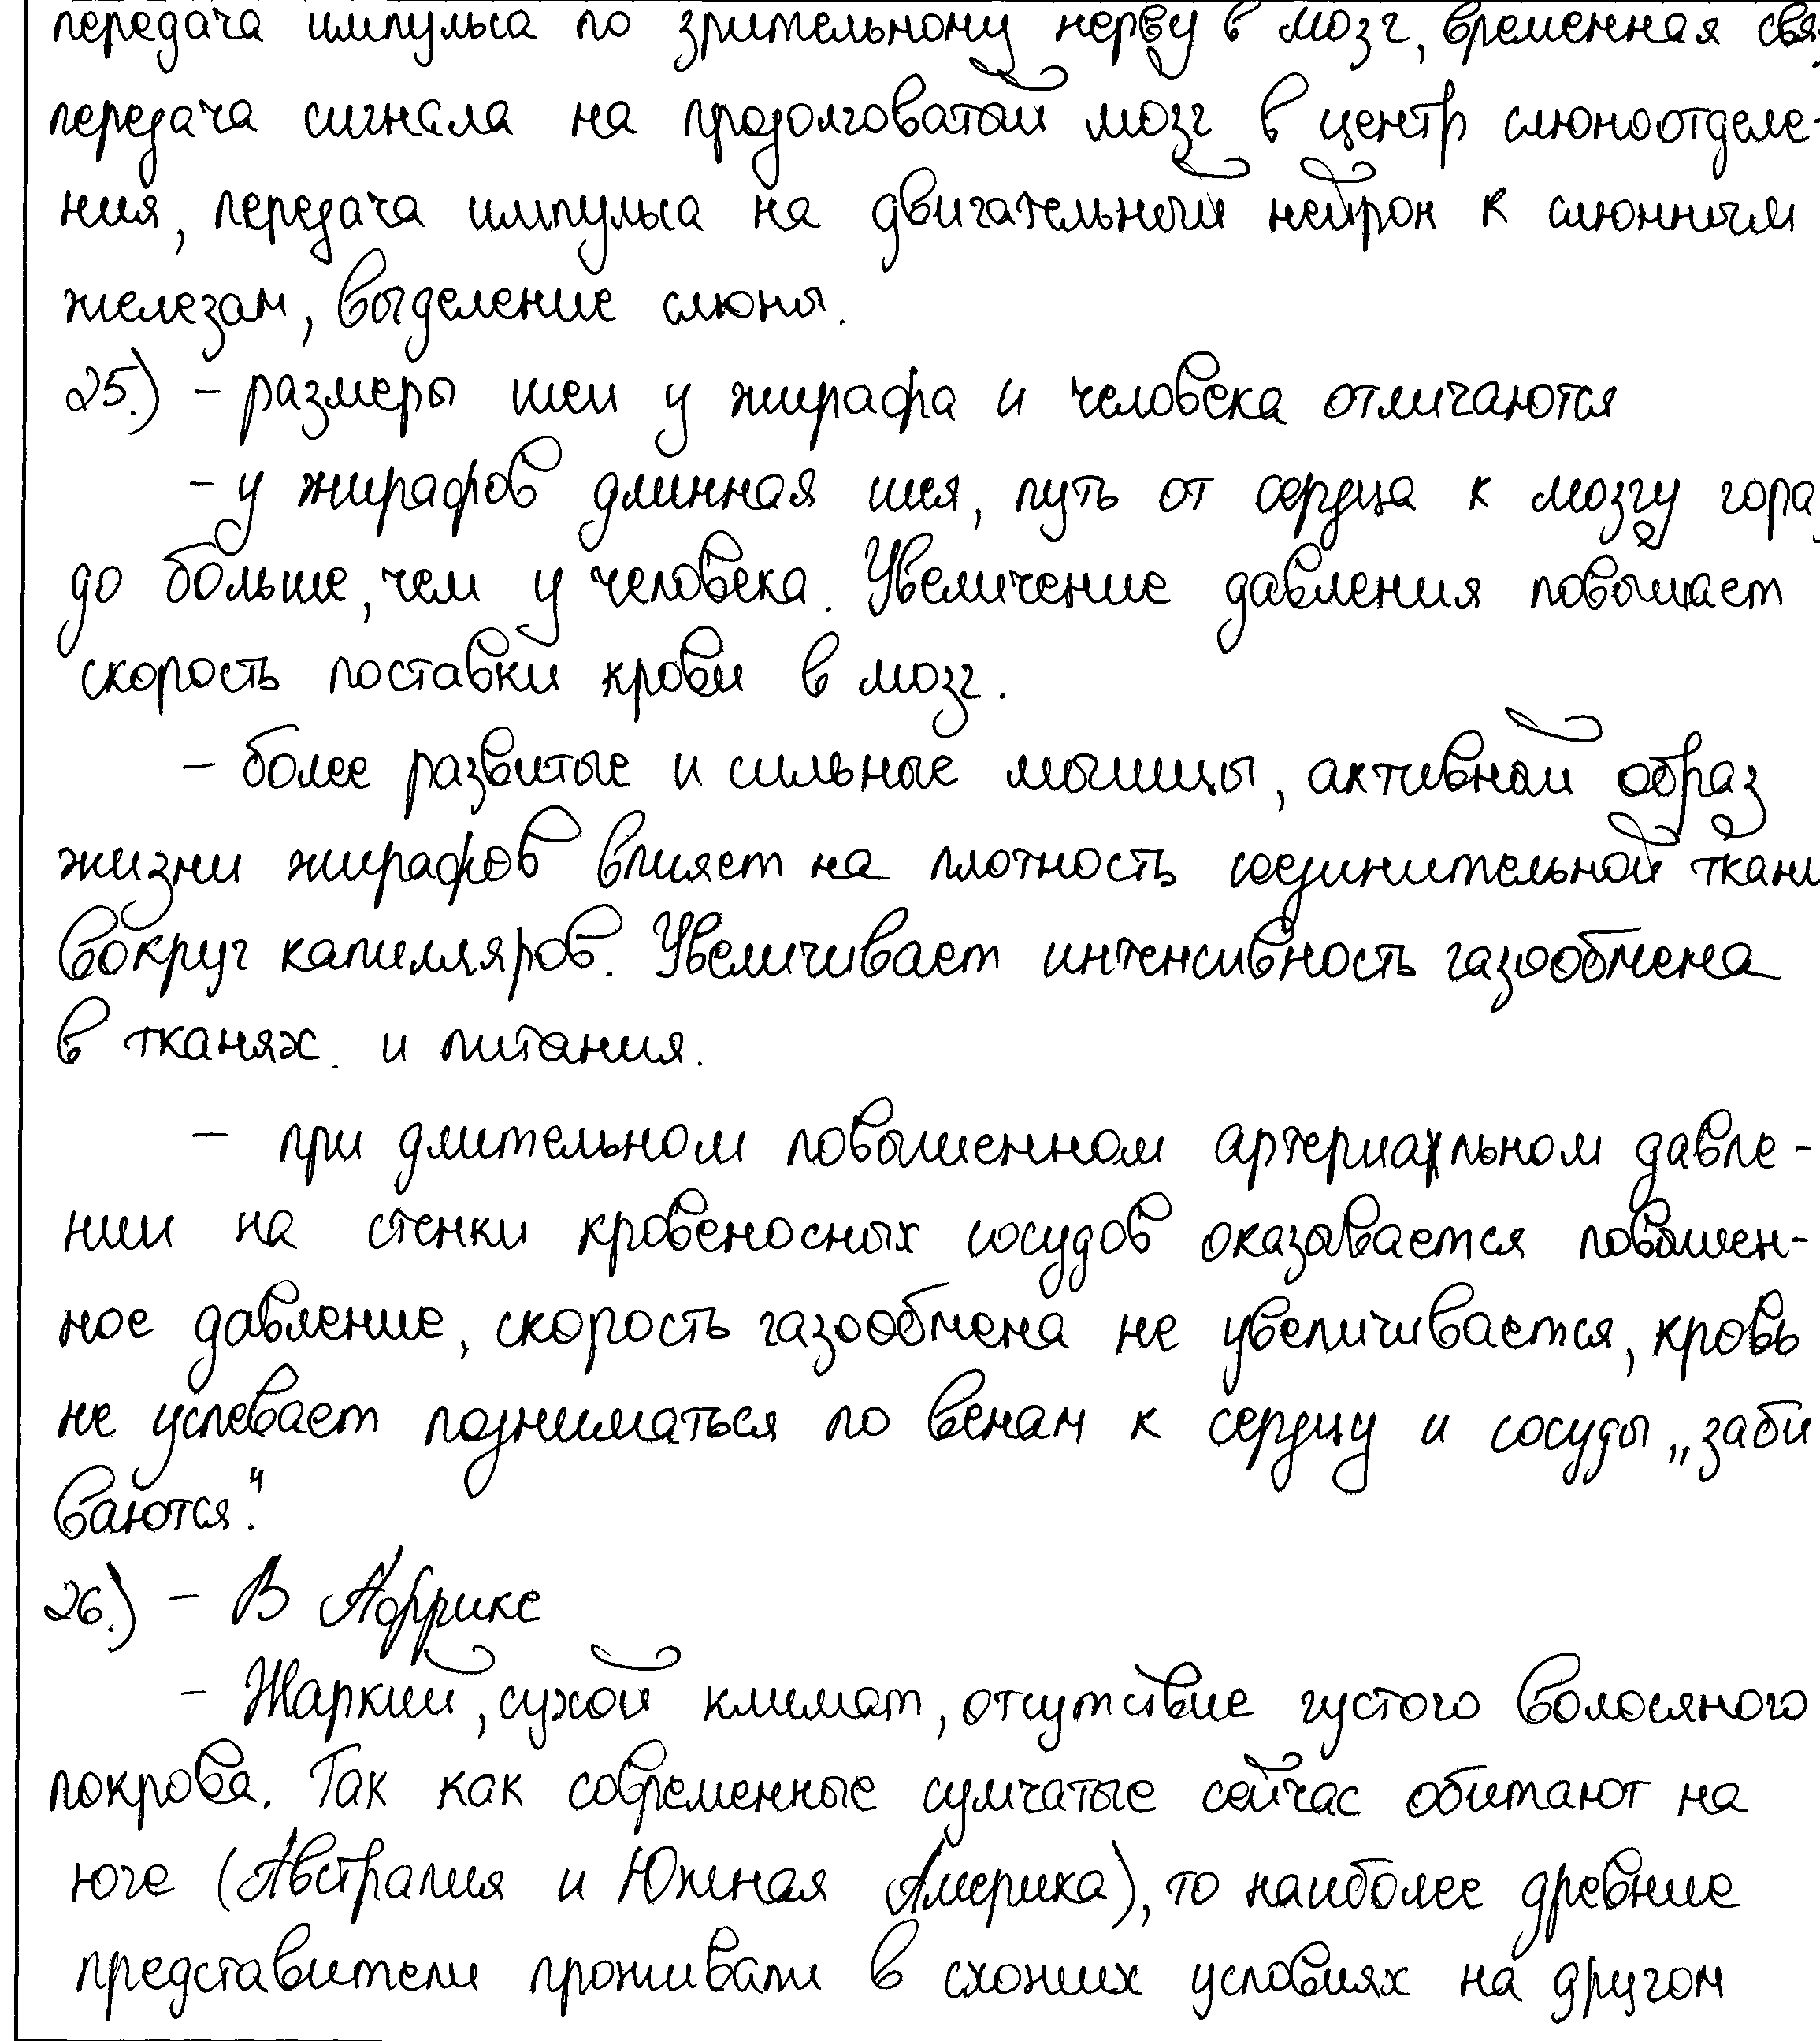 передача импульса по зрительному нерву в мозг, временная свя
передача сигнала на продолговатый мозг в центр слюноотделе-
ния, передача импульса на двигательный нейрон к слюнным
железам, выделение слюны.
25.) – размеры шеи у жирафа и человека отличаются
– у жирафов длинная шея, путь от сердца к мозгу гораз
до больше, чем у человека. Увеличение давления повышает
скорость поставки крови в мозг.
– более развитые и сильные мышцы, активный образ
жизни жирафов влияет на плотность соединительной ткани
вокруг капилляров. Увеличивает интенсивность газообмена
в тканях. и питания.
– при длительном повышенном артериальном давле-
нии на стенки кровеносных сосудов оказывается повышен-
ное давление, скорость газообмена не увеличивается, кровь
не успевает подниматься по венам к сердцу и сосуды „заби
ваются".
26.) – В Африке
– Жаркий, сухой климат, отсутствие густого волосяного
покрова. Так как современные сумчатые сейчас обитают на
юге (Австралия и Южная Америка), то наиболее древние
представители проживали в схожих условиях на другом